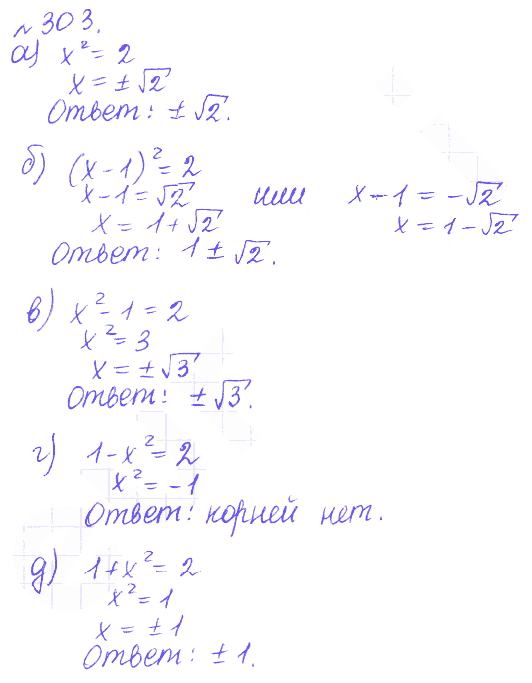 № 303.
а) x² = 2
x = ± √2
Ответ: ± √2.
б) (x - 1)² = 2
x - 1 = √2 или x - 1 = -√2
x = 1 + √2 x = 1 - √2
Ответ: 1 ± √2.
в) x² - 1 = 2
x² = 3
x = ± √3
Ответ: ± √3.
г) 1 - x² = 2
x² = -1
Ответ: корней нет.
д) 1 + x² = 2
x² = 1
x = ± 1
Ответ: ± 1.